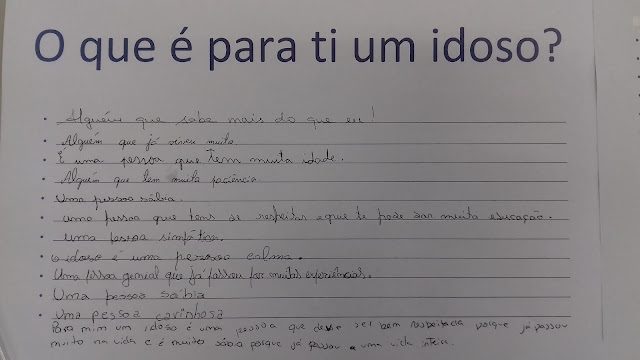 O que é para ti um idoso?
Alguém que sabe mais do que eu!
Alguém que já viveu muito.
É uma pessoa que tem muita idade.
Alguém que tem muita paciência.
Uma pessoa sábia.
uma pessoa que tens de respeitar e que te pode dar muita educação.
uma pessoa simpática.
o idoso é uma pessoa calma.
Uma pessoa genial que já passou por muitas experiências.
Uma pessoa sábia
uma pessoa carinhosa
Para mim um idoso é uma pessoa que deve ser bem respeitada porque já passou
muito na vida e é muito sábia porque já passou uma vida inteira.